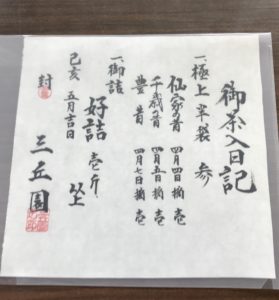 御茶入日記
一、極上 半袋 参
仙家の昔 四月四日摘 壱
千歳の昔 四月五日摘 壱
豊昔 四月七日摘 壱
一、御詰
好詰 壱斤
以上
己亥 五月吉日
封 三丘園